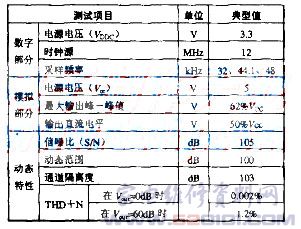 测试项目 单位 典型值
数字部分 电源电压（VDDC） V 3.3
时钟源 MHz 12
采样频率 kHz 32、44.1、48
模拟部分 电源电压（Vcc） V 5
最大输出峰—峰值 V 62%Vcc
输出直流电平 V 50%Vcc
动态特性 信噪比（S/N） dB 105
动态范围 dB 100
通道隔离度 dB 103
THD＋N 在Vout=0dB时 0.002%
在Vout=60dB时 1.2%